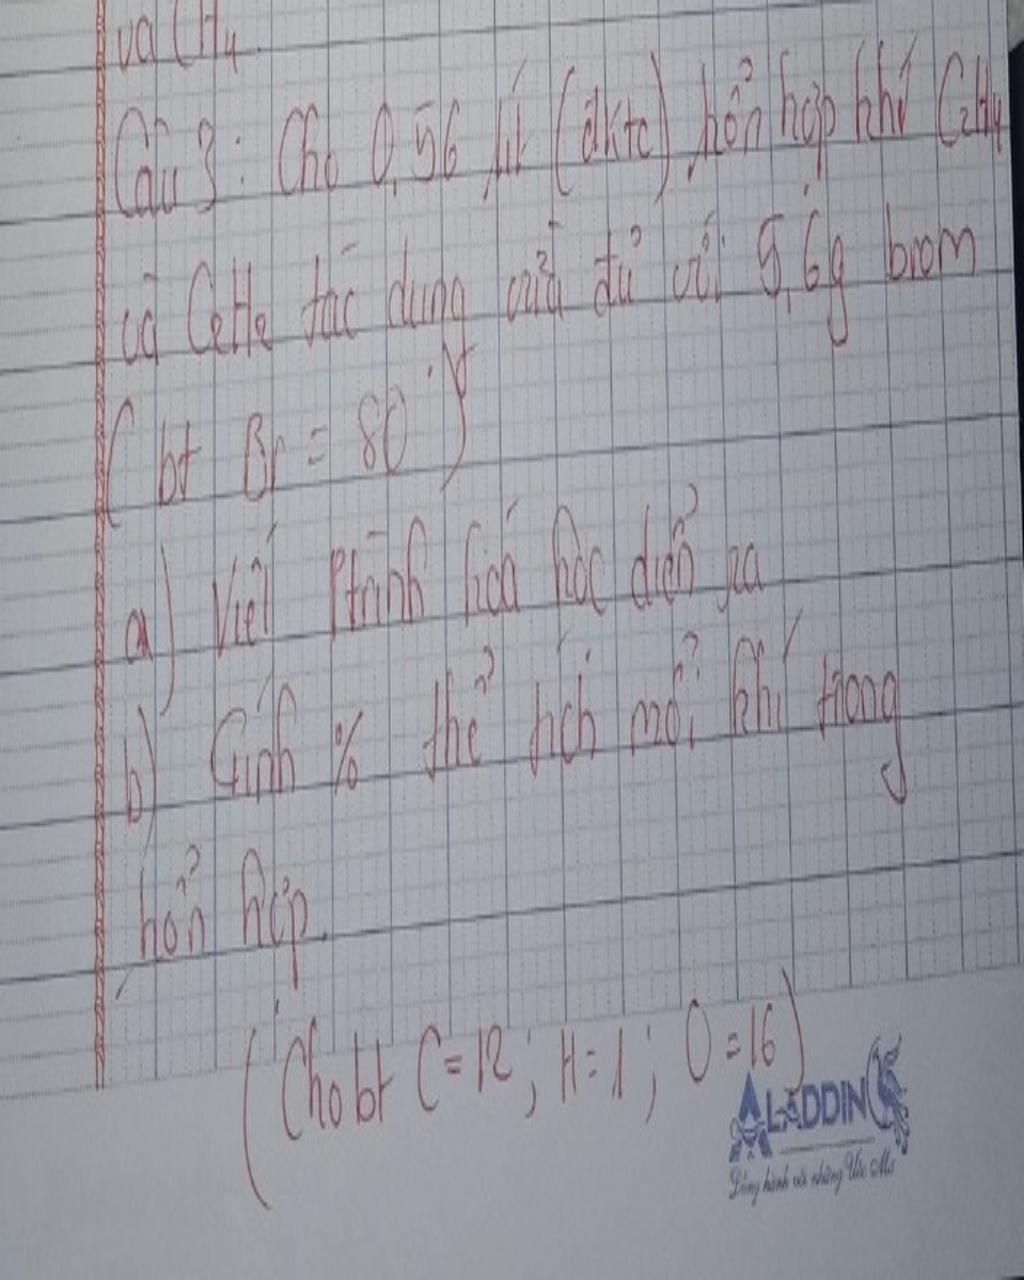 và CH4.
Câu 3: Cho 0,56 lít (đktc) hỗn hợp khí C2H4
và C2H2 tác dụng vừa đủ với 5,6g brom
( bt Br = 80 )
a) Viết Ptrình hoá học diễn ra
b) Tính % thể tích mỗi khí trong
hỗn hợp.
( Cho bt C = 12 ; H = 1 ; O = 16 )
ALADDIN
Đồng hành với những Ước Mơ